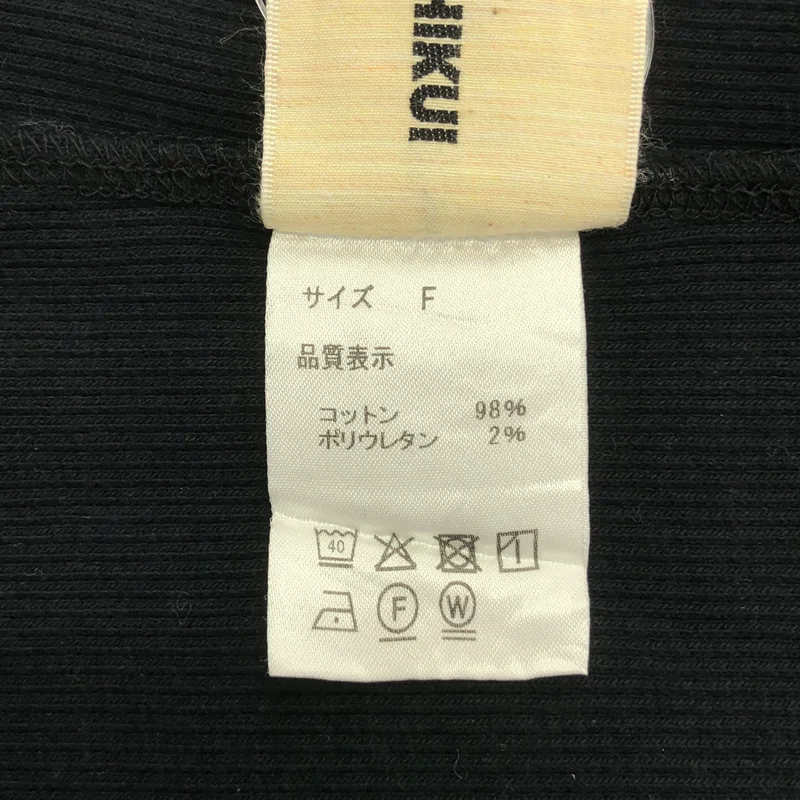 HIKUI
サイズ F
品質表示
コットン 98%
ポリウレタン 2%
40
F W